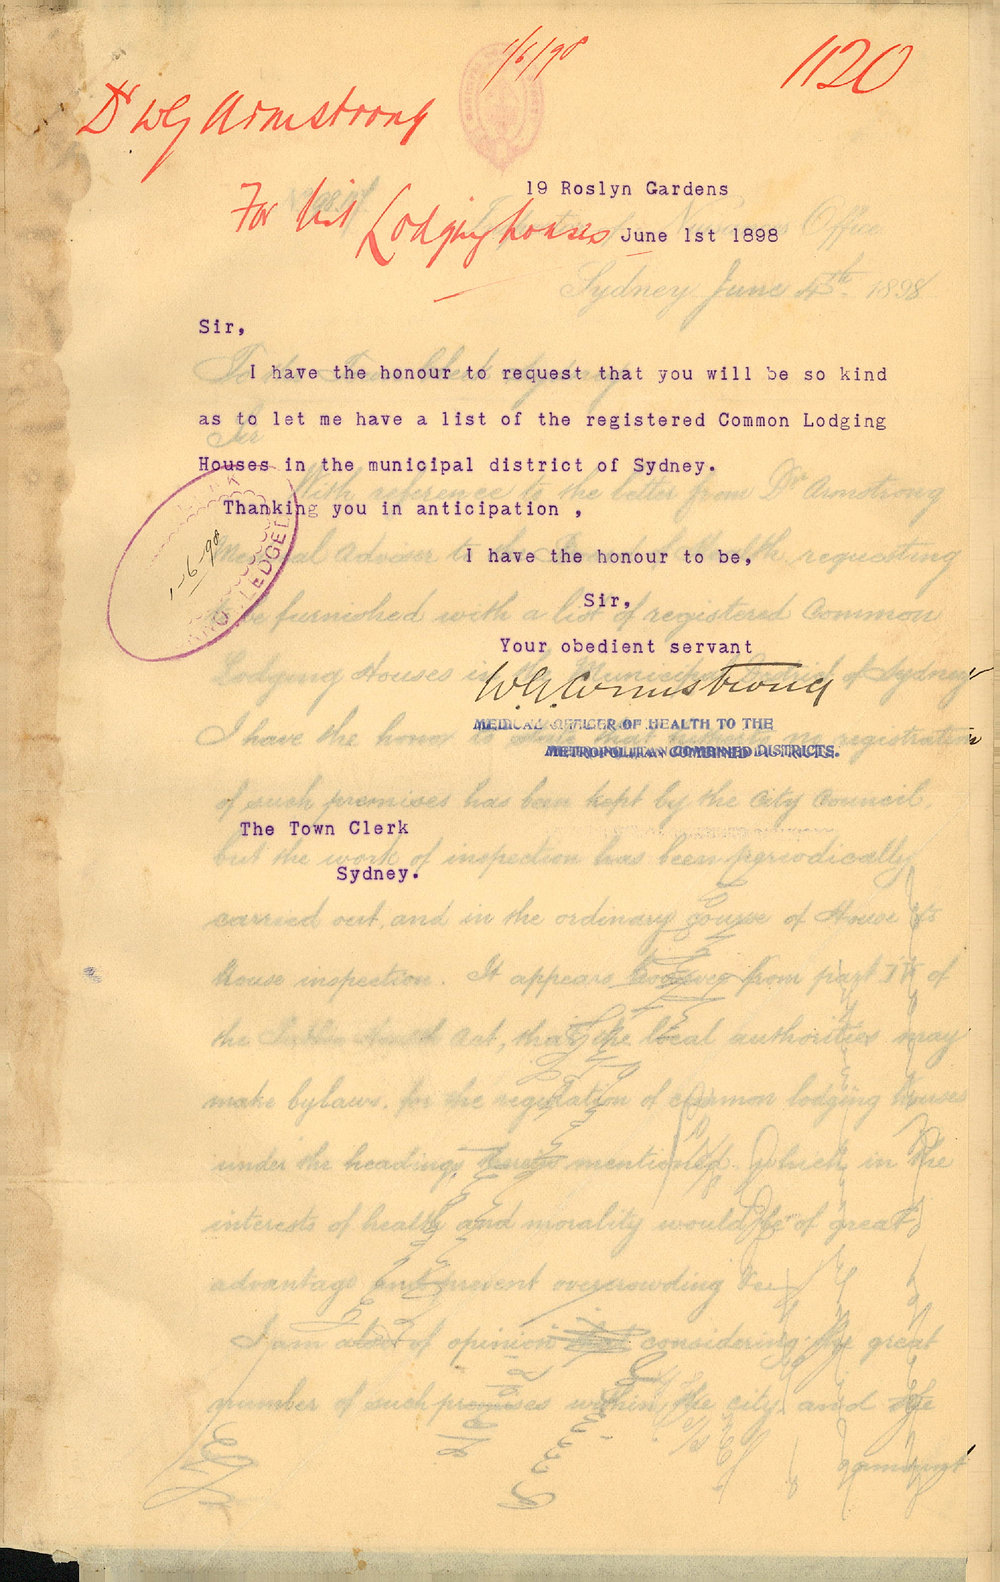 1/6/98
1120
Dr WG Armstrong
For list Lodging houses
19 Roslyn Gardens
June 1st 1898
Sir,
I have the honour to request that you will be so kind
as to let me have a list of the registered Common Lodging
Houses in the municipal district of Sydney.
Thanking you in anticipation ,
I have the honour to be,
Sir,
Your obedient servant
W.G. Armstrong
MEDICAL OFFICER OF HEALTH TO THE
METROPOLITAN COMBINED DISTRICTS.
1-6-98
The Town Clerk
Sydney.
Nuisances Office
Sydney June 4th 1898
Sir
With reference to the letter from Dr Armstrong
Medical Adviser to the Board of Health, requesting
be furnished with a list of registered Common
Lodging Houses in the Municipal District of Sydney
I have the honor to state that no registration
of such premises has been kept by the City Council,
but the work of inspection has been periodically
carried out, and in the ordinary course of House to
house inspection. It appears however from part IV of
the Public Health Act, that the local authorities may
make bylaws, for the regulation of common lodging Houses
under the headings therein mentioned. which in the
interests of health and morality would be of great
advantage and prevent overcrowding &c
I am also of opinion considering the great
number of such premises within the city, and the